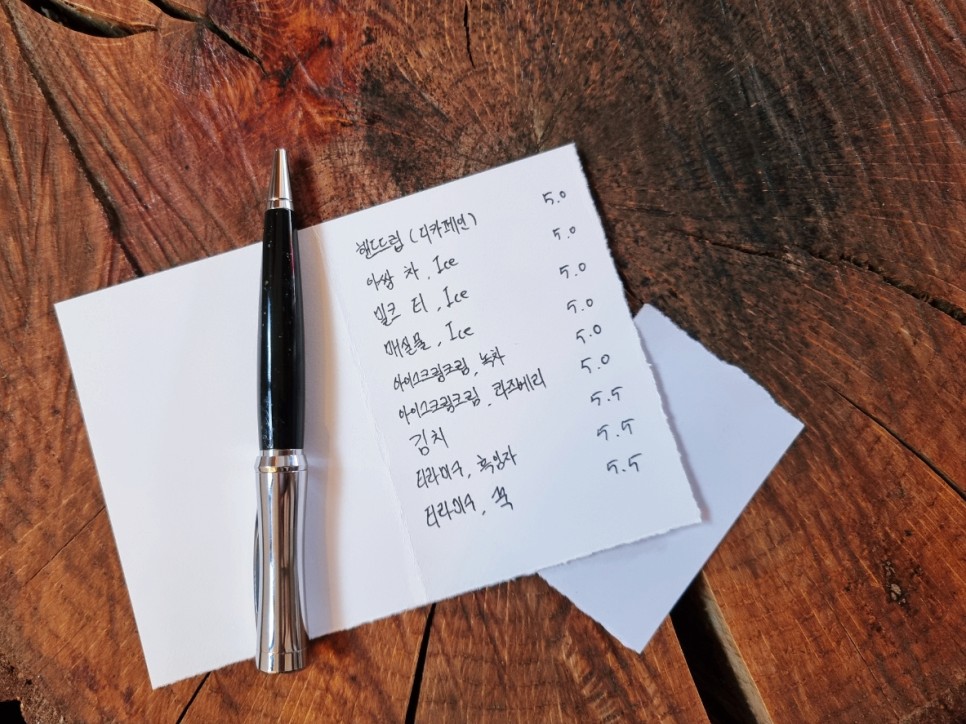 핸드드립 (디카페인) 5.0
아쌈 차, Ice 5.0
밀크 티, Ice 5.0
매실물, Ice 5.0
아이스크림크림, 녹차 5.0
아이스크림크림, 라즈베리 5.0
김치 5.5
티라미수, 흑임자 5.5
티라미수, 쑥 5.5